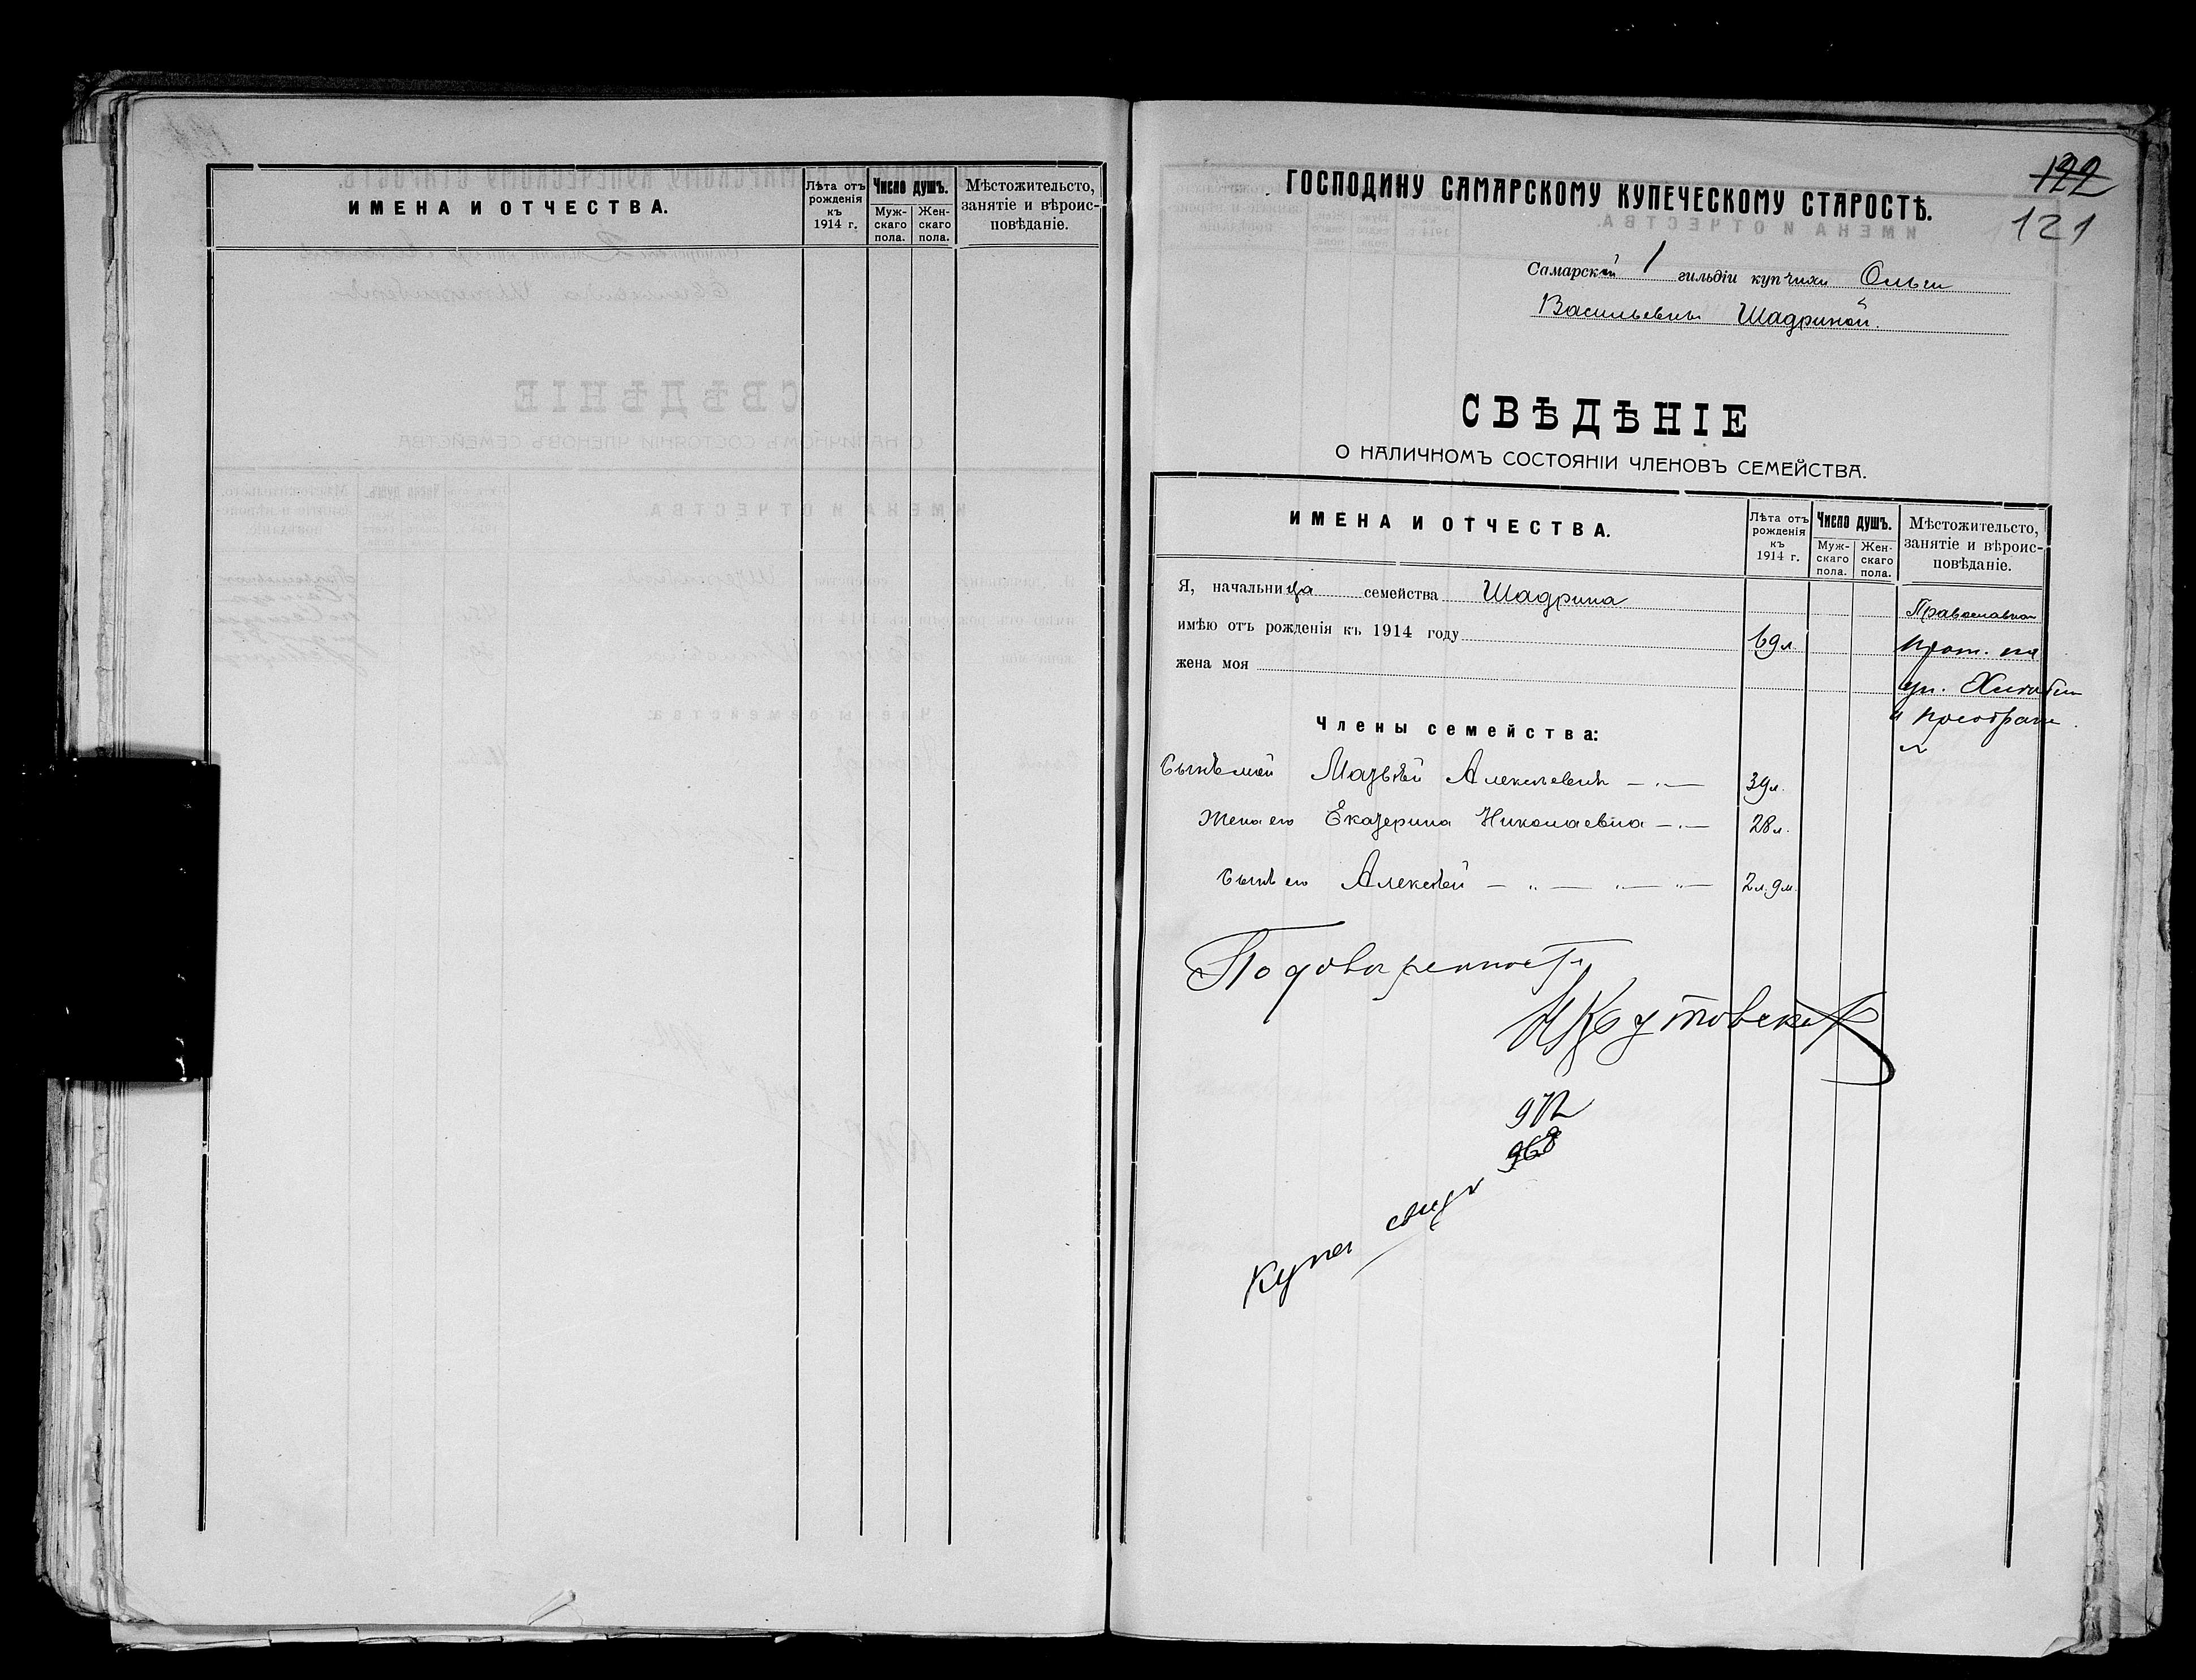 ИМЕНА И ОТЧЕСТВА.
Лѣта отъ рожденія къ 1914 г.
Число душъ.
Муж-скаго пола.
Жен-скаго пола.
Мѣстожительсто, занятіе и вѣроис-повѣданіе.
122
121
ГОСПОДИНУ САМАРСКОМУ КУПЕЧЕСКОМУ СТАРОСТѢ.
Самарской 1 гильдіи купчихи Ольги
Васильевны Шадриной.
СВѢДѢНІЕ
О НАЛИЧНОМЪ СОСТОЯНІИ ЧЛЕНОВЪ СЕМЕЙСТВА.
ИМЕНА И ОТЧЕСТВА.
Лѣта отъ рожденія къ 1914 г.
Число душъ.
Муж-скаго пола.
Жен-скаго пола.
Мѣстожительсто, занятіе и вѣроис-повѣданіе.
Я, начальница семейства Шадрина
Православная
имѣю отъ рожденія къ 1914 году 69 л.
жена моя
ул.
и
Члены семейства:
Сынъ мой Матвѣй Алексѣевичъ 39 л.
Жена его Екатерина Николаевна 28 л.
Сынъ его Алексѣй 2 л. 9 м.
По довѣренности
972
968
Купеч свид